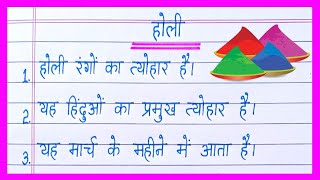 होली
1. होली रंगों का त्योहार है।
2. यह हिंदुओं का प्रमुख त्योहार है।
3. यह मार्च के महीने में आता है।